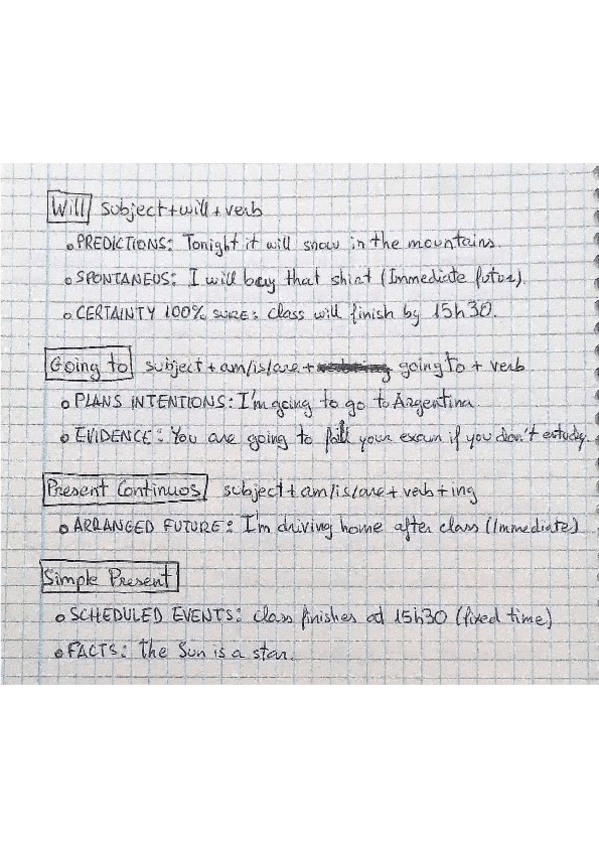 Will subject+will+verb
PREDICTIONS: Tonight it will snow in the mountains.
SPONTANEUS: I will buy that shirt (Immediate future).
CERTAINTY 100% SURE: class will finish by 15h30.
Going to subject+am/is/are+ going to + verb
PLANS INTENTIONS: I'm going to go to Argentina
EVIDENCE: You are going to fail your exam if you don't estudy.
Present Continuos subject+am/is/are+verb+ing
ARRANGED FUTURE: I'm driving home after class (Immediate)
Simple Present
SCHEDULED EVENTS: class finishes at 15h30 (fixed time)
FACTS: the Sun is a star.